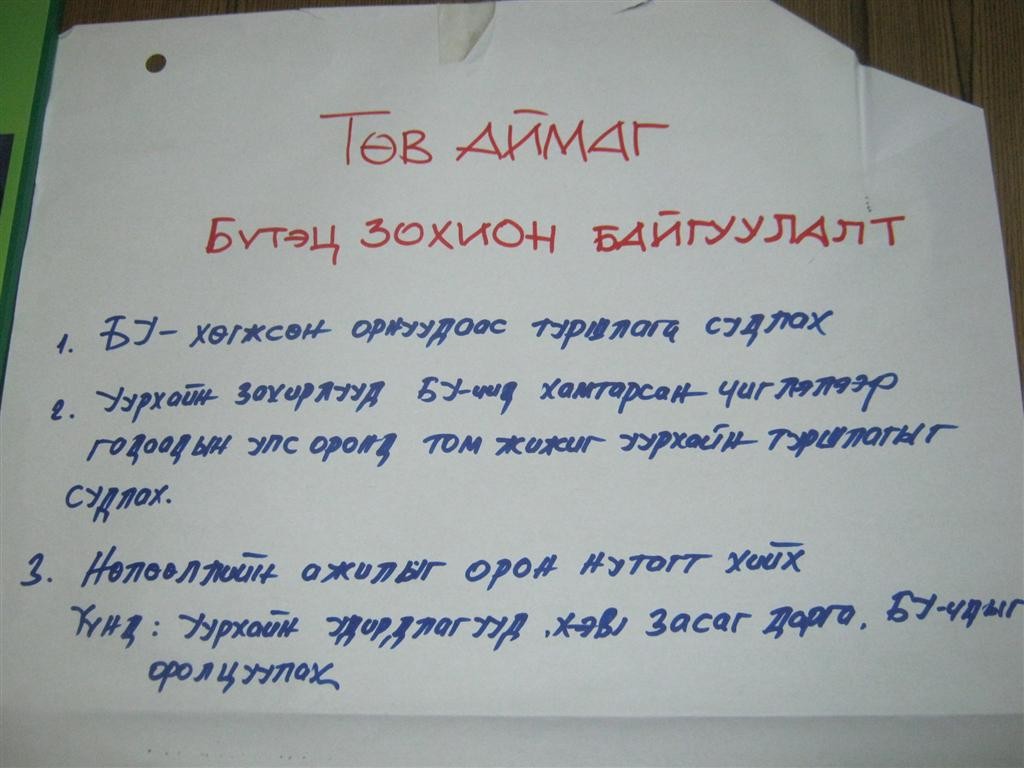 ТӨВ АЙМАГ
БҮТЭЦ ЗОХИОН БАЙГУУЛАЛТ
1. БУ- хөгжсөн орнуудаас туршлага судлах
2. Уурхайн захирлууд БУ-чид хамтарсан чиглэлээр
гадаадын улс оронд том жижиг уурхайн туршлагыг
судлах.
3. Нөлөөллийн ажилыг орон нутагт хийх
Үүнд: Уурхайн удирдлагууд, Засаг дарга, БУ-чдыг
оролцуулах